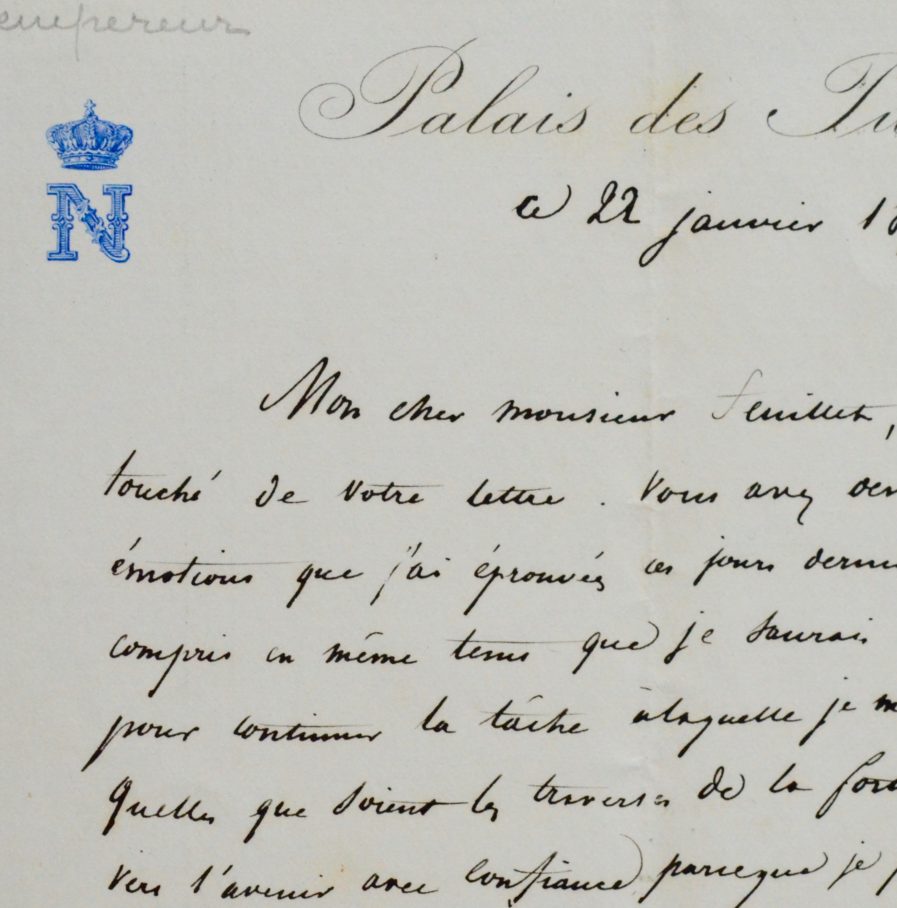 empereur
Palais des Tu
N
ce 22 janvier 18
Mon cher monsieur Feuillet,
touché de votre lettre. Vous avez
émotions que j'ai éprouvées ces jours
compris en même tems que je saurais
pour continuer la tâche à laquelle je
quelles que soient les traverses de la
vers l'avenir avec confiance parceque je